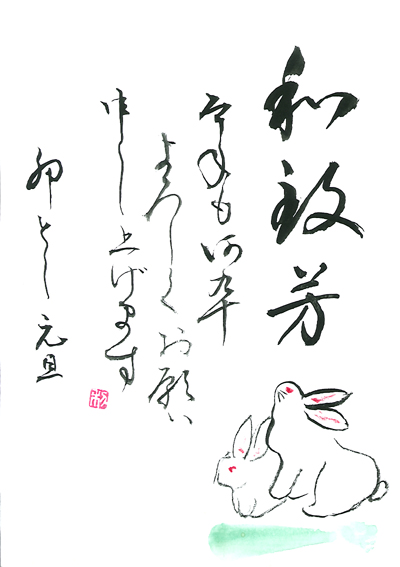 和致芳
今年も何卒
よろしくお願い
申し上げます
卯とし元旦